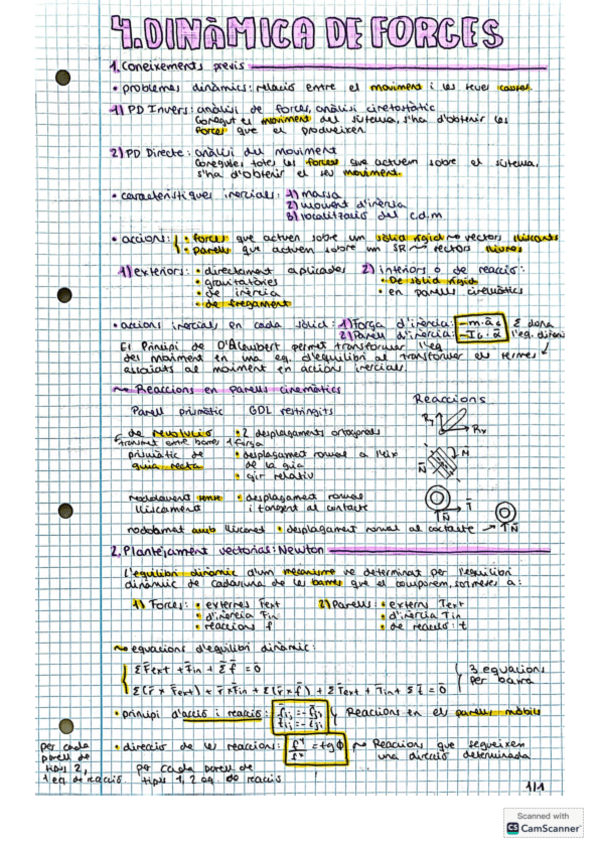 4. DINÀMICA DE FORCES
1. Coneixements previs
• problemes dinàmics: relació entre el moviment i les seves causes.
1) PD Invers: anàlisi de forces, anàlisi cinetostàtic
Conegut el moviment del sistema, s'ha d'obtenir les
forces que el produeixen
2) PD Directe: anàlisi del moviment
Conegudes totes les forces que actuen sobre el sistema,
s'ha d'obtenir el seu moviment.
• característiques inercials: 1) massa
2) moment d'inèrcia
3) localització del c.d.m
• accions: • forces que actuen sobre un sòlid rígid ~ vectors lliscants
• parells que actuen sobre un SR ~ vectors lliures
1) exteriors: • directament aplicades
• gravitatòries
• de inèrcia
• de fregament
2) interiors o de reacció:
• De sòlid rígid
• en parells cinemàtics
• accions inercials en cada sòlid: 1) Força d'inèrcia: -m·ā_G
2) Parell d'inèrcia: -I_G·ᾱ
El Principi de D'Alembert permet transformar l'eq.
del moviment en una eq. d'equilibri al transformar els termes
associats al moviment en accions inercials.
~ Reaccions en parells cinemàtics
Parell prismàtic GDL restringits Reaccions
de revolució • 2 desplaçaments ortogonals
prismàtic de • desplaçament normal a l'eix
guia recta de la guia
• gir relatiu
Rodolament sense • desplaçament normal
lliscament i tangent al contacte
rodolament amb lliscament • desplaçament normal al contacte → N̄
2. Plantejament vectorial: Newton
L'equilibri dinàmic d'un mecanisme ve determinat per l'equilibri
dinàmic de cadascuna de les barres que el componen, sotmeses a:
1) Forces: • externes F̄ext
• d'inèrcia F̄in
• reaccions f
2) Parells: • externs T̄ext
• d'inèrcia T̄in
• de reacció: t
~ equacions d'equilibri dinàmic:
ΣF̄ext + F̄in + Σf̄ = 0
Σ(r̄ x F̄ext) + r̄ x F̄in + Σ(r̄ x f̄) + ΣT̄ext + T̄in + Σt̄ = 0̄
3 equacions
per barra
• principi d'acció i reacció: f̄ij = -f̄ji
t̄ij = -t̄ji
Reaccions en els parells mòbils
• direcció de les reaccions: f^y/f^x = tg φ ~ Reaccions que segueixen
una direcció determinada
per cada
parell de
tipus 2,
1 eq de reacció
per cada parell de
tipus 1, 2 eq. de reacció
1/1
Scanned with
CS CamScanner